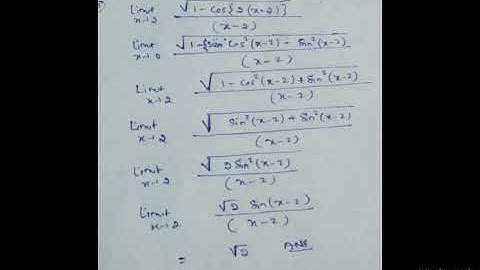 Limit x→2 √1-cos{2(x-2)} / (x-2)
Limit x→0 √1-{cos²(x-2) - sin²(x-2) / (x-2)
Limit x→2 √1-cos²(x-2)+sin²(x-2) / (x-2)
Limit x→2 √sin²(x-2)+sin²(x-2) / (x-2)
Limit x→2 √2sin²(x-2) / (x-2)
Limit x→2 √2 sin(x-2) / (x-2)
= √2 Ans